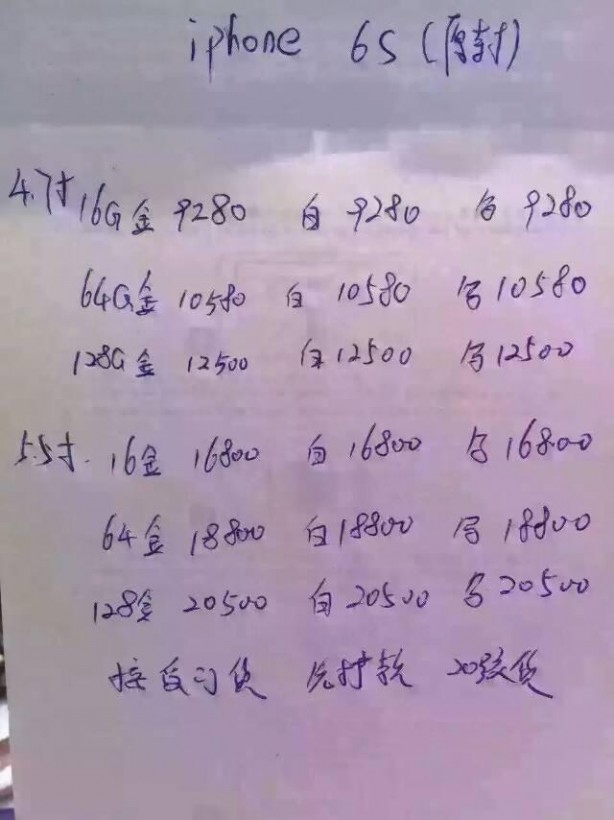 iphone 6S (原封)
4.7寸 16G 金 9280 白 9280 黑 9280
64G 金 10580 白 10580 黑 10580
128G 金 12500 白 12500 黑 12500
5.5寸. 16 金 16800 白 16800 黑 16800
64 金 18800 白 18800 黑 18800
128 金 20500 白 20500 黑 20500
接受订货 先付款